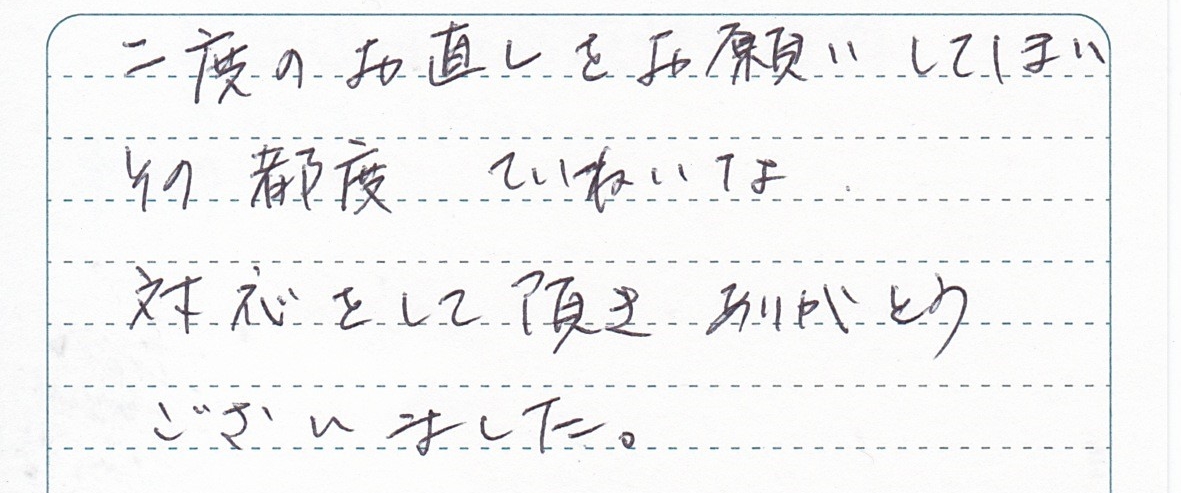 二度のお直しをお願いしてしまい
その都度 ていねいな
対応をして頂き ありがとう
ございました。